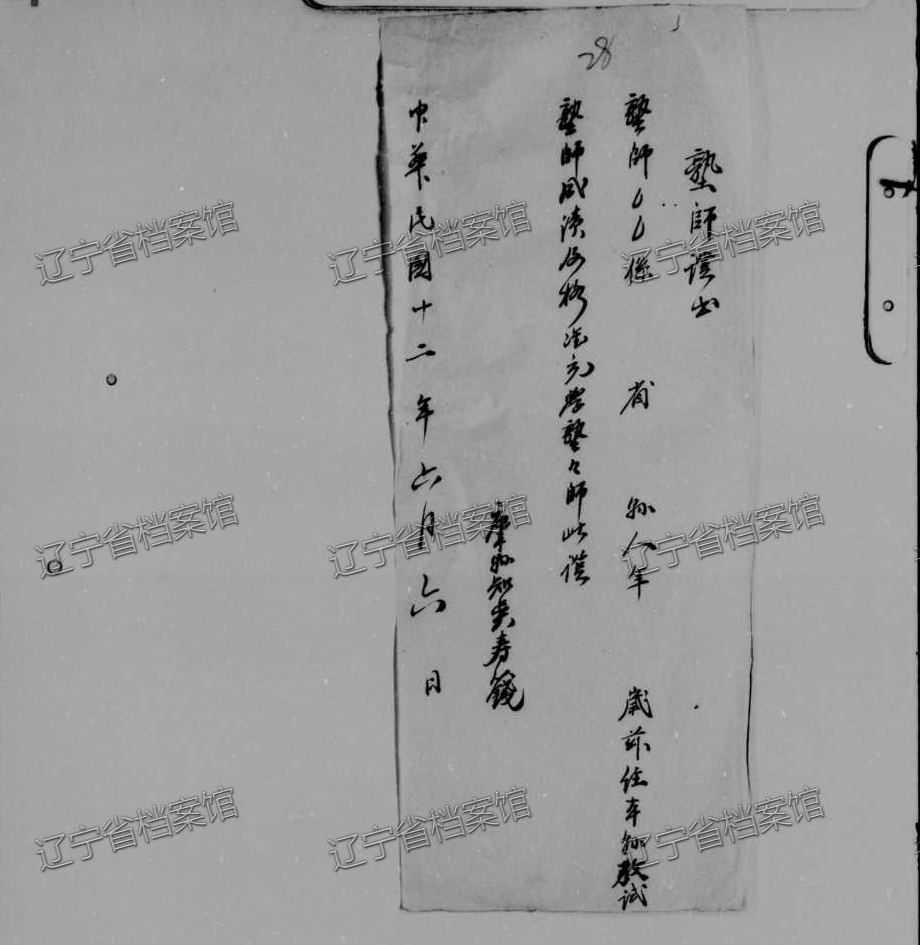 28
塾師證書
塾師〻〻係 省 縣人年 歲茲經本縣考試
塾師成績及格准充學塾之師此證
縣知事寿籛
中華民國十二年六月六日
辽宁省档案馆
辽宁省档案馆
辽宁省档案馆
辽宁省档案馆
辽宁省档案馆
辽宁省档案馆
辽宁省档案馆
辽宁省档案馆
辽宁省档案馆